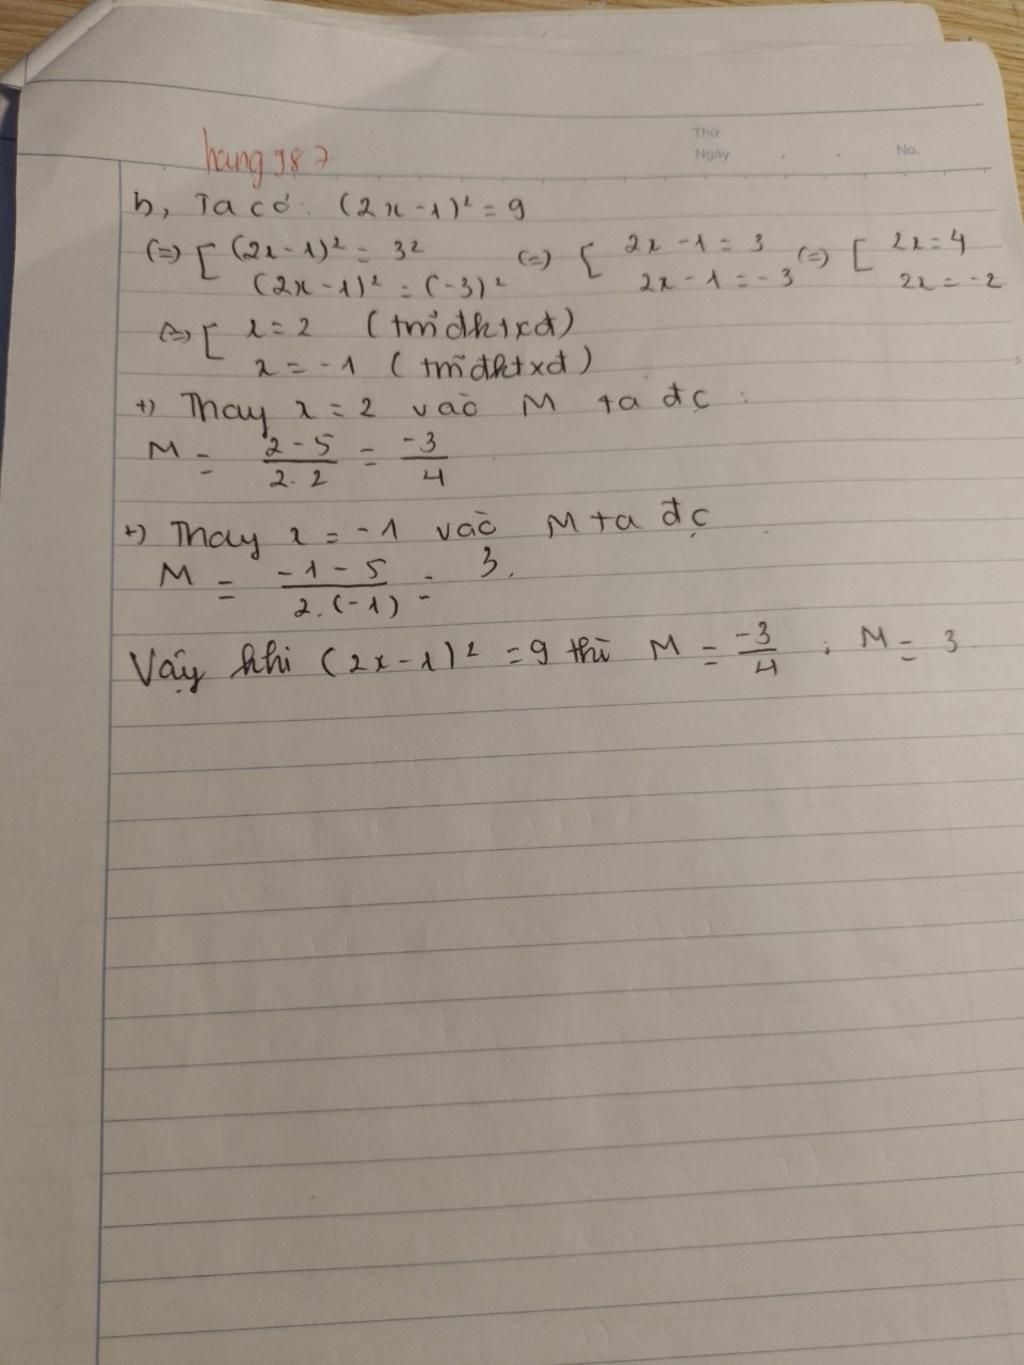 Thứ
Ngày . . No.
hang987
b, Ta có: (2x-1)² = 9
(=) [ (2x-1)² = 3² (=) [ 2x-1 = 3 (=) [ 2x = 4
(2x-1)² = (-3)² 2x-1 = -3 2x = -2
(=) [ x = 2 (tm đktxđ)
x = -1 (tm đktxđ)
+) Thay x = 2 vào M ta đc :
M = \frac{2-5}{2.2} = \frac{-3}{4}
+) Thay x = -1 vào M ta đc
M = \frac{-1-5}{2.(-1)} = 3.
Vậy khi (2x-1)² = 9 thì M = \frac{-3}{4} ; M = 3